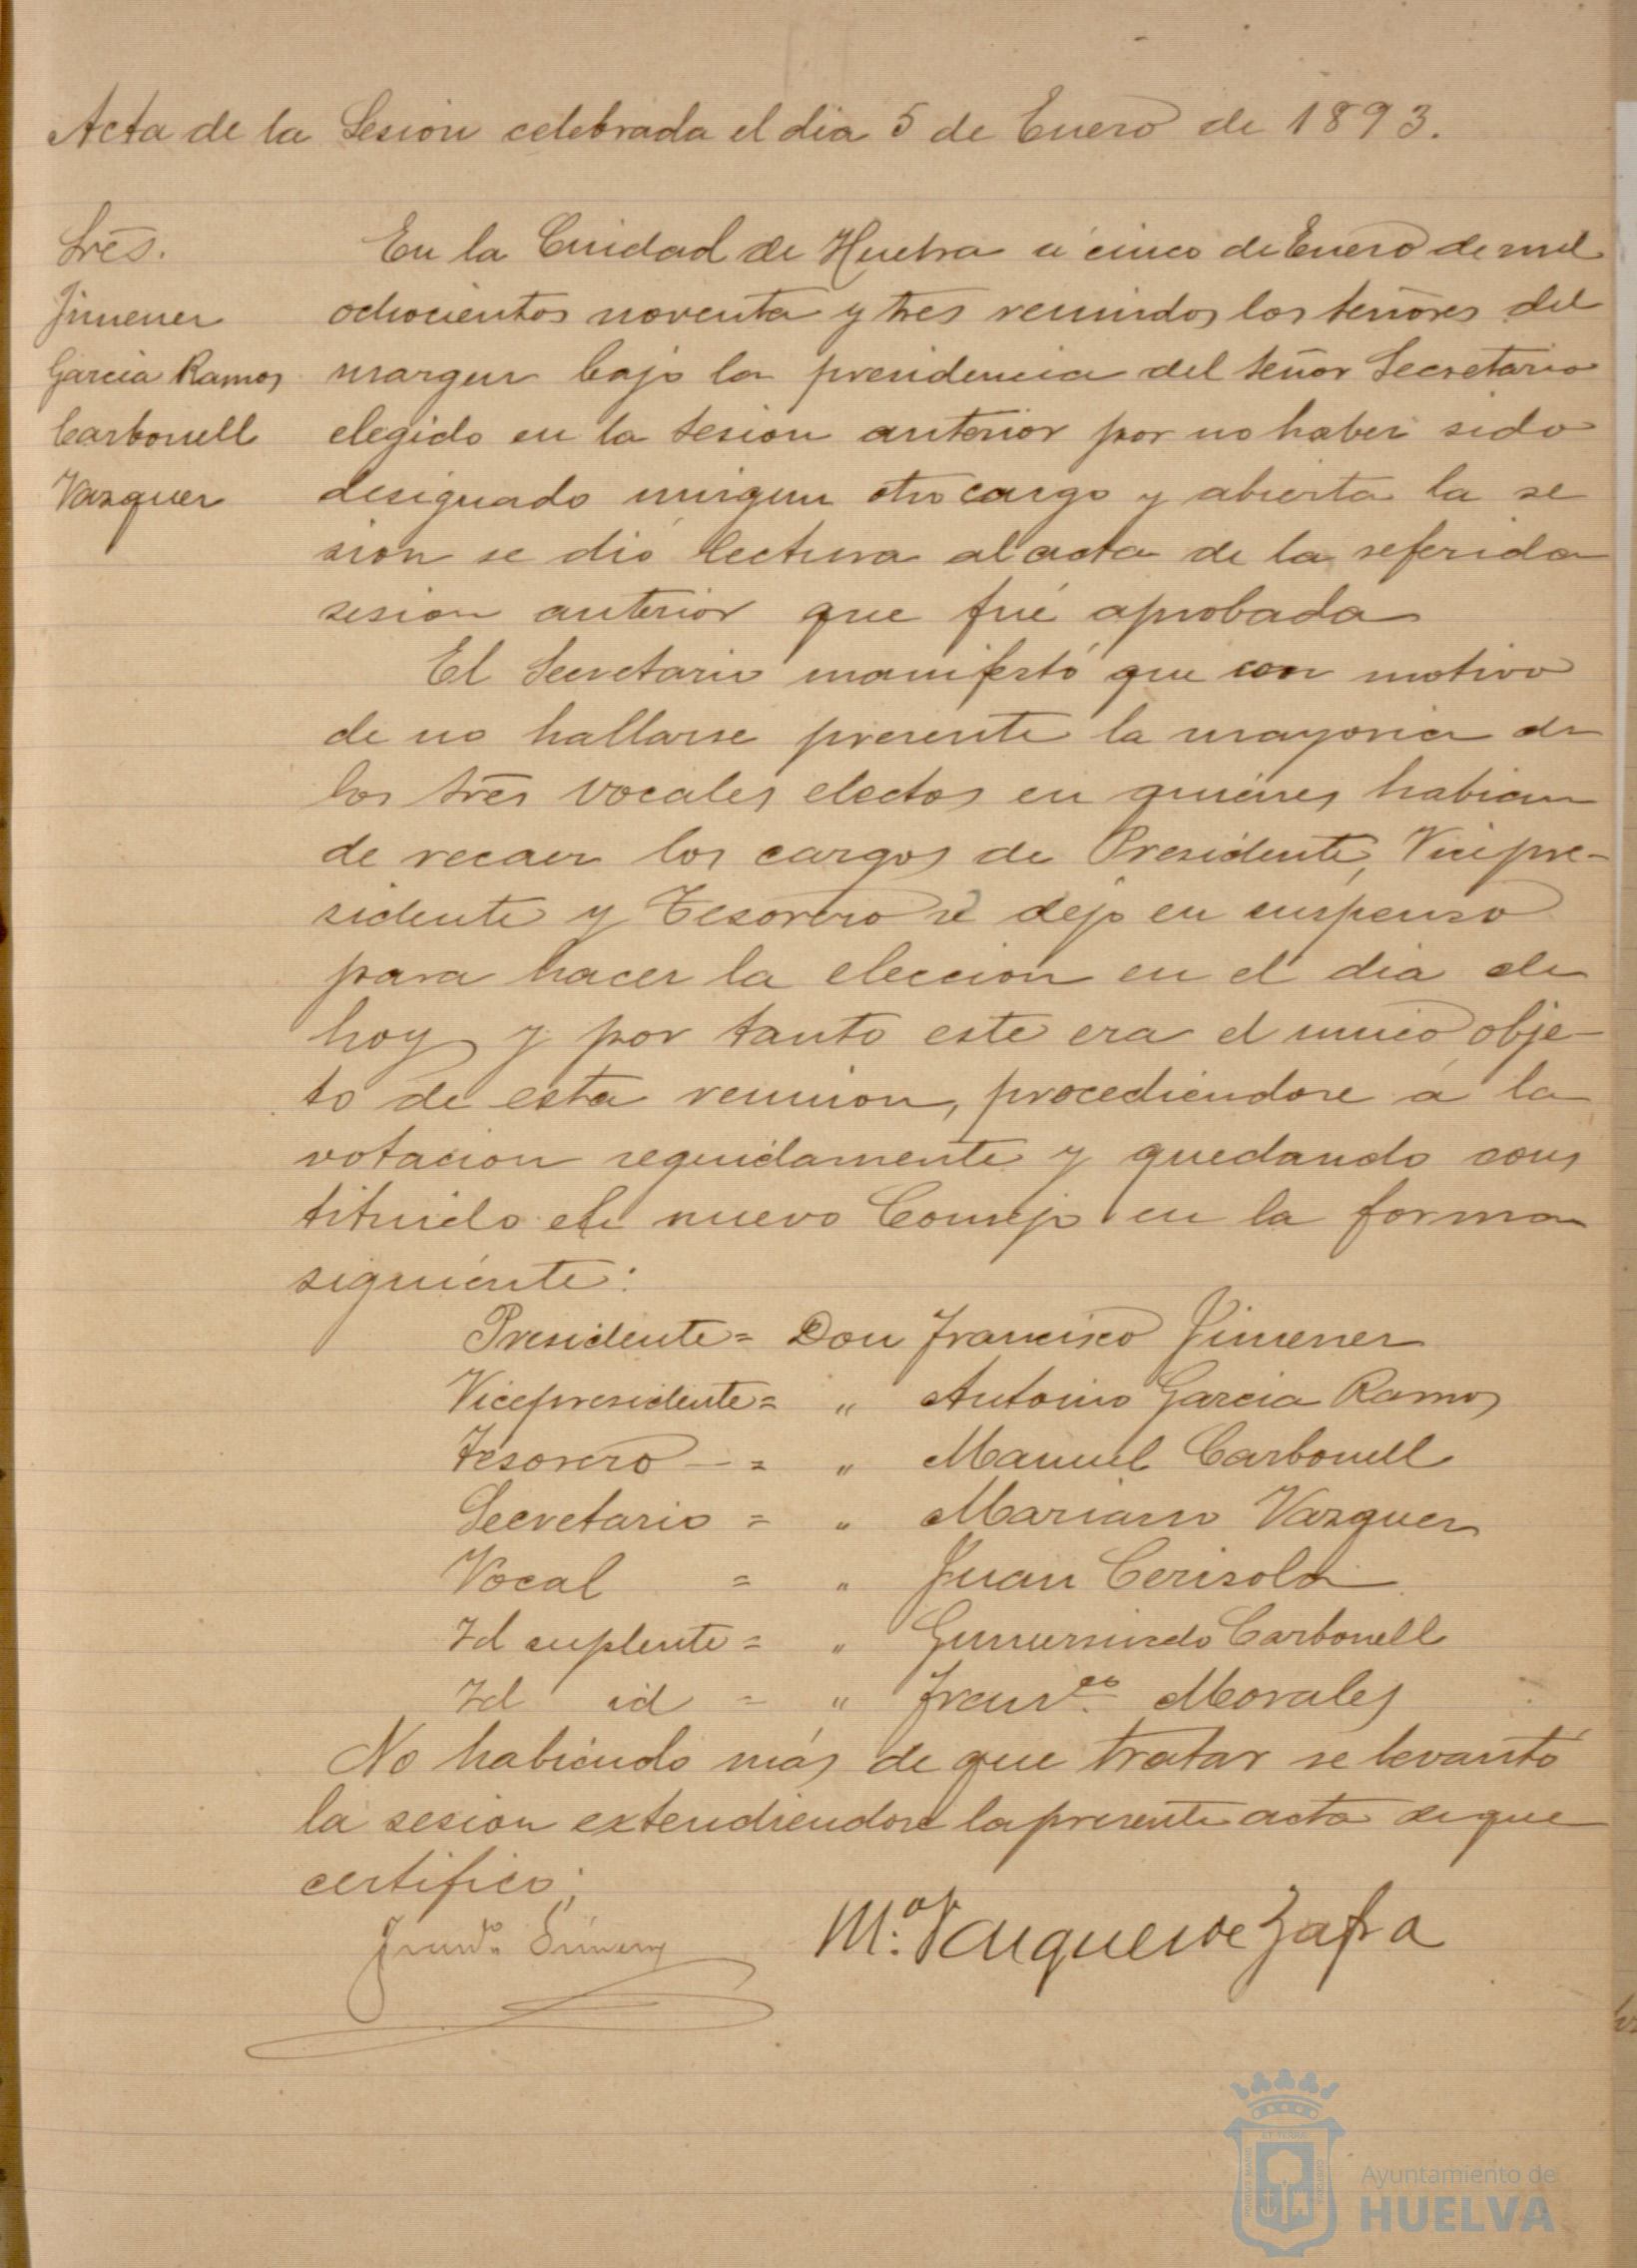 Acta de la Sesion celebrada el dia 5 de Enero de 1893.
Sres.
Jimenez
Garcia Ramos
Carbonell
Vazquez
En la Ciudad de Huelva á cinco de Enero de mil
ochocientos noventa y tres reunidos los señores del
margen bajo la presidencia del señor Secretario
elegido en la sesion anterior por no haber sido
designado ningun otro cargo y abierta la se
sion se dió lectura al acta de la referida
sesion anterior que fué aprobada
El Secretario manifestó que con motivo
de no hallarse presente la mayoria de
los Sres vocales electos en quienes habian
de recaer los cargos de Presidente, Vicepre-
sidente y Tesorero se dejó en suspenso
para hacer la eleccion en el dia de
hoy y por tanto este era el unico obje-
to de esta reunion, procediendose á la
votacion seguidamente y quedando cons
tituido el nuevo Consejo en la forma
siguiente:
Presidente = Don Francisco Jimenez
Vicepresidente = " Antonio Garcia Ramos
Tesorero — = " Manuel Carbonell
Secretario = " Mariano Vazquez
Vocal = " Juan Cerisola
Id suplente = " Gumersindo Carbonell
Id id = " Franco. Morales
No habiendo más de que tratar se levantó
la sesion extendiendose la presente acta de que
certifico;
M.º Vazquez de Zafra
Ayuntamiento de
HUELVA